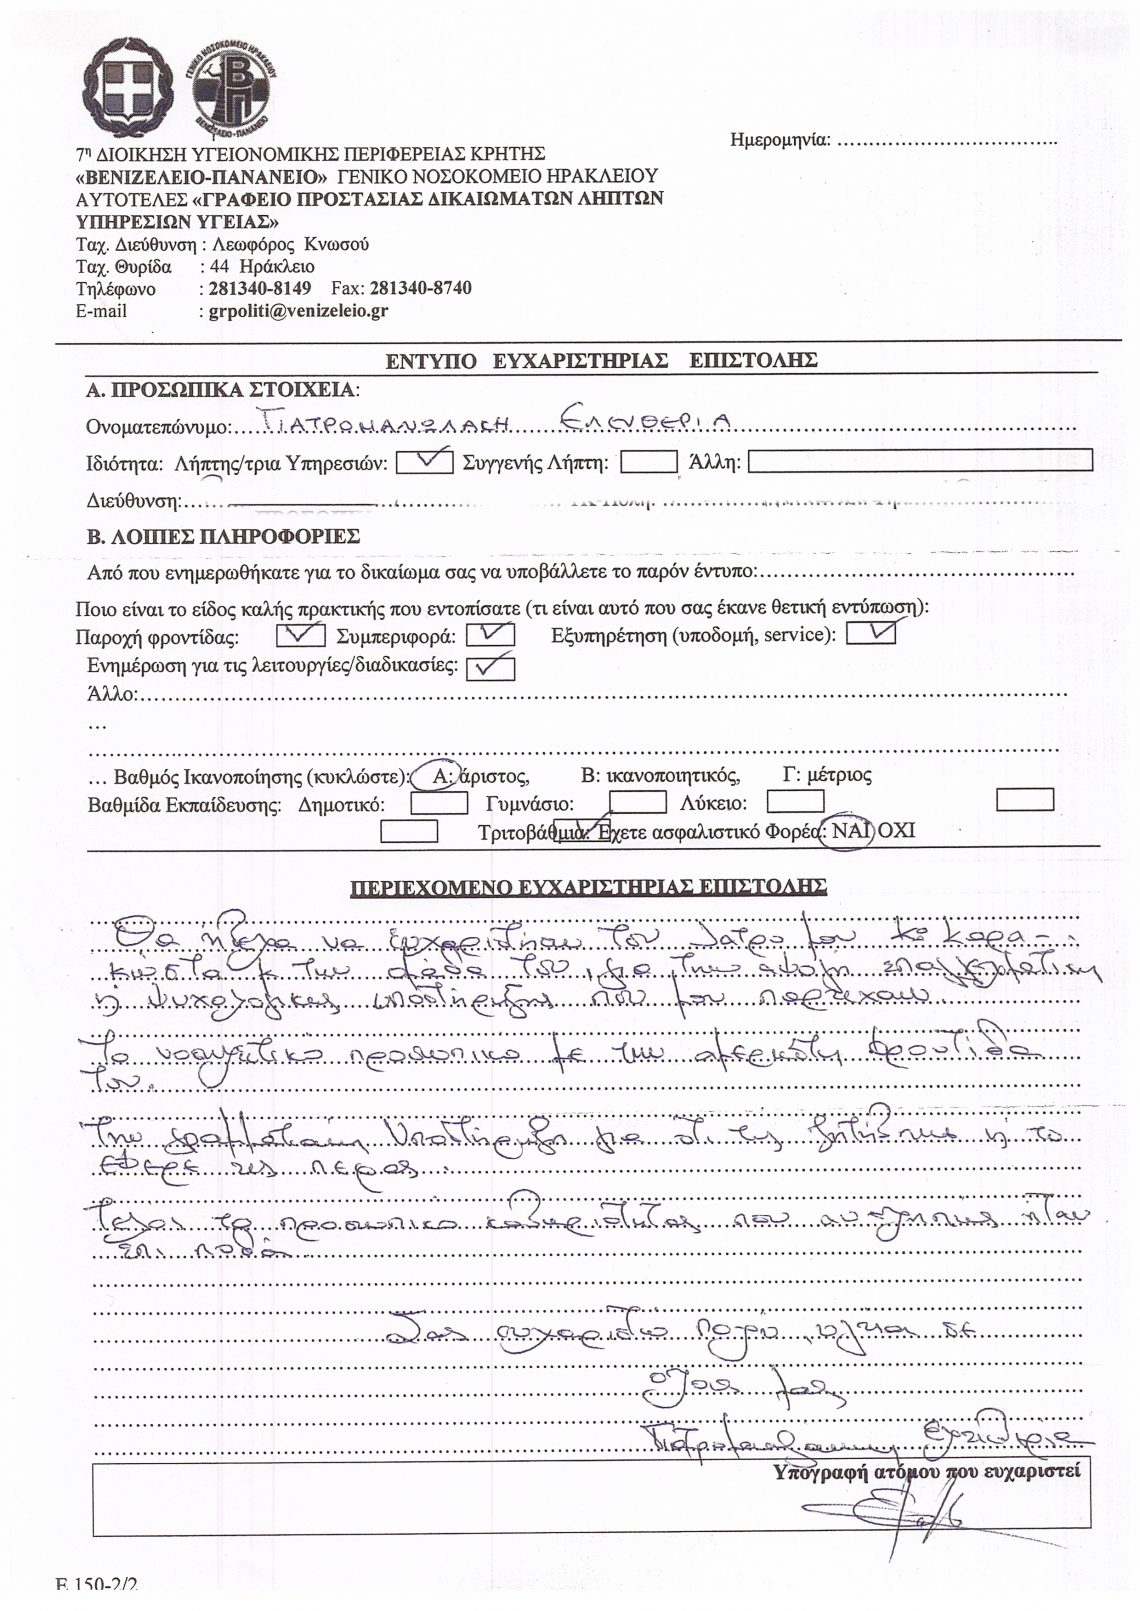 ΓΕΝΙΚΟ ΝΟΣΟΚΟΜΕΙΟ ΗΡΑΚΛΕΙΟΥ
ΒΠ
ΒΕΝΙΖΕΛΕΙΟ-ΠΑΝΑΝΕΙΟ
Ημερομηνία: ......................................
7η ΔΙΟΙΚΗΣΗ ΥΓΕΙΟΝΟΜΙΚΗΣ ΠΕΡΙΦΕΡΕΙΑΣ ΚΡΗΤΗΣ
«ΒΕΝΙΖΕΛΕΙΟ-ΠΑΝΑΝΕΙΟ» ΓΕΝΙΚΟ ΝΟΣΟΚΟΜΕΙΟ ΗΡΑΚΛΕΙΟΥ
ΑΥΤΟΤΕΛΕΣ «ΓΡΑΦΕΙΟ ΠΡΟΣΤΑΣΙΑΣ ΔΙΚΑΙΩΜΑΤΩΝ ΛΗΠΤΩΝ
ΥΠΗΡΕΣΙΩΝ ΥΓΕΙΑΣ»
Ταχ. Διεύθυνση : Λεωφόρος Κνωσού
Ταχ. Θυρίδα : 44 Ηράκλειο
Τηλέφωνο : 281340-8149 Fax: 281340-8740
E-mail : grpoliti@venizeleio.gr
ΕΝΤΥΠΟ ΕΥΧΑΡΙΣΤΗΡΙΑΣ ΕΠΙΣΤΟΛΗΣ
Α. ΠΡΟΣΩΠΙΚΑ ΣΤΟΙΧΕΙΑ:
Ονοματεπώνυμο: ΓΙΑΤΡΟΜΑΝΩΛΑΚΗ ΕΛΕΥΘΕΡΙΑ
Ιδιότητα: Λήπτης/τρια Υπηρεσιών: ✓ Συγγενής Λήπτη: Άλλη:
Διεύθυνση:
Β. ΛΟΙΠΕΣ ΠΛΗΡΟΦΟΡΙΕΣ
Από που ενημερωθήκατε για το δικαίωμα σας να υποβάλλετε το παρόν έντυπο:
Ποιο είναι το είδος καλής πρακτικής που εντοπίσατε (τι είναι αυτό που σας έκανε θετική εντύπωση):
Παροχή φροντίδας: ✓ Συμπεριφορά: ✓ Εξυπηρέτηση (υποδομή, service): ✓
Ενημέρωση για τις λειτουργίες/διαδικασίες: ✓
Άλλο:
…
… Βαθμός Ικανοποίησης (κυκλώστε): Α: άριστος, Β: ικανοποιητικός, Γ: μέτριος
Βαθμίδα Εκπαίδευσης: Δημοτικό: Γυμνάσιο: Λύκειο:
Τριτοβάθμια: ✓ Έχετε ασφαλιστικό Φορέα: ΝΑΙ ΟΧΙ
ΠΕΡΙΕΧΟΜΕΝΟ ΕΥΧΑΡΙΣΤΗΡΙΑΣ ΕΠΙΣΤΟΛΗΣ
Θα ήθελα να ευχαριστήσω τον Ιατρό μου Κο Καρα-
κώστα κ την ομάδα του, για την άψογη επαγγελματική
ή ψυχολογικής υποστήριξης που μου παρείχαν
Το νοσηλευτικό προσωπικό με την αμέριστη φροντίδα
του.
Την γραμματειακή Υποστήριξη για ότι της ζητήθηκε ή το
έφερε εις πέρας.
Τέλος το προσωπικό καθαριότητας που ήταν
επί ποδά
Σας ευχαριστώ πολύ, υγεία σε
όλους μας
Γιατρομανωλάκη Ελευθερία
Υπογραφή ατόμου που ευχαριστεί
Ε 150-2/2